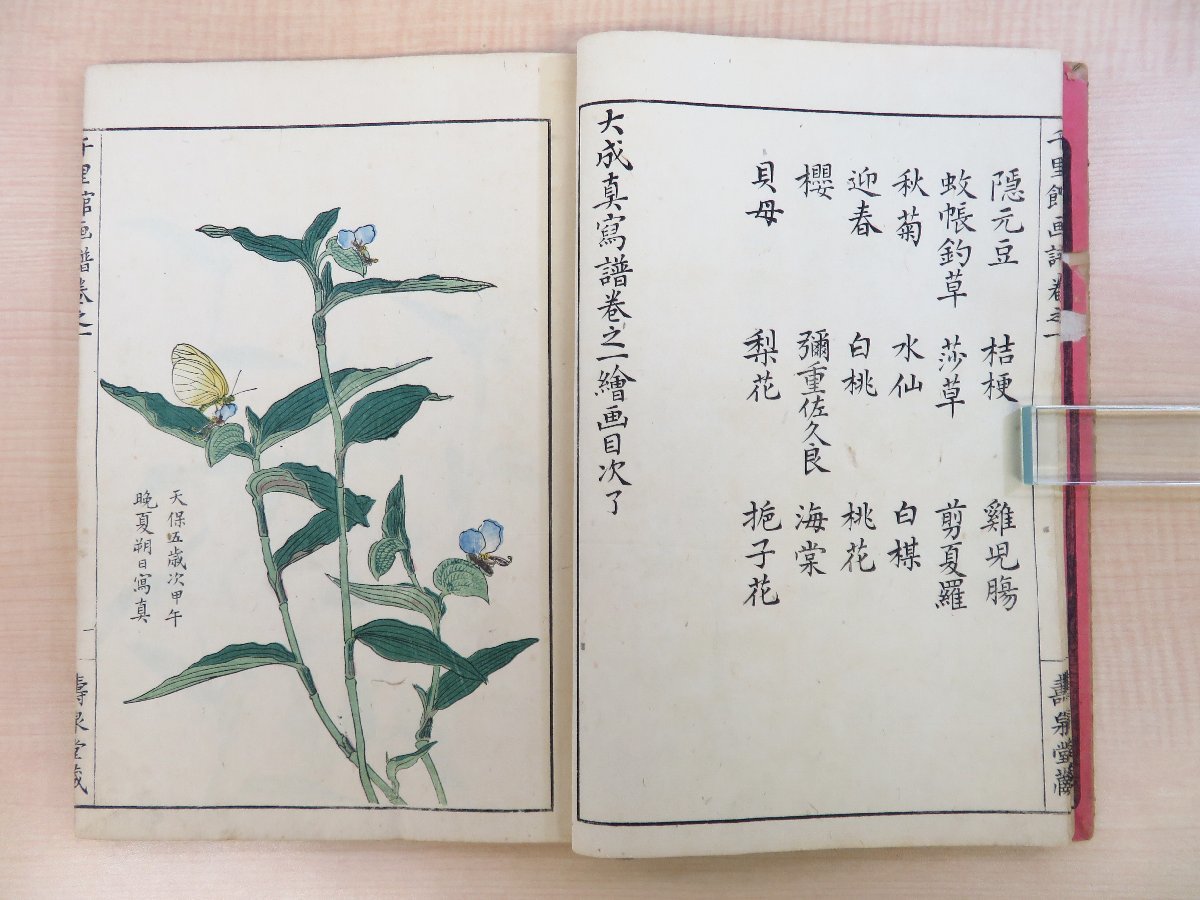 千里館画譜卷之一
壽泉堂藏
隱元豆 桔梗 雞児腸
蚊帳釣草 莎草 剪夏羅
秋菊 水仙 白楳
迎春 白桃 桃花
櫻 彌重佐久良 海棠
貝母 梨花 梔子花
大成真寫譜卷之一繪画目次了
天保五歳次甲午
晩夏朔日寫真
千里館画譜卷之一
一
壽泉堂藏